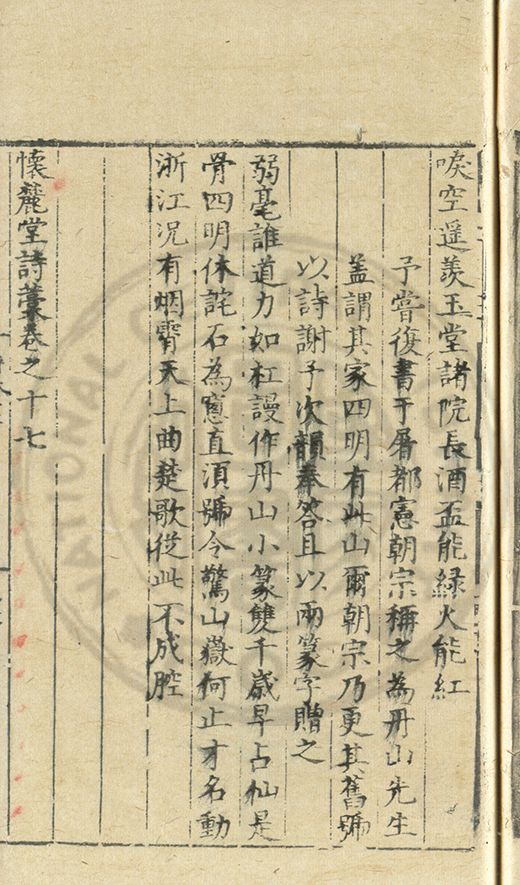 唳空遥羡玉堂諸院長酒盃能緑火能紅
予嘗復書于屠都憲朝宗稱之為丹山先生
盖謂其家四明有此山爾朝宗乃更其舊號
以詩謝予次韻奉答且以兩篆字贈之
弱毫誰道力如杠謾作丹山小篆雙千歳早占仙是
骨四明休詫石為窻直湏號令驚山嶽何止才名動
浙江况有烟霄天上曲楚歌從此不成腔
懷麓堂詩藁卷之十七